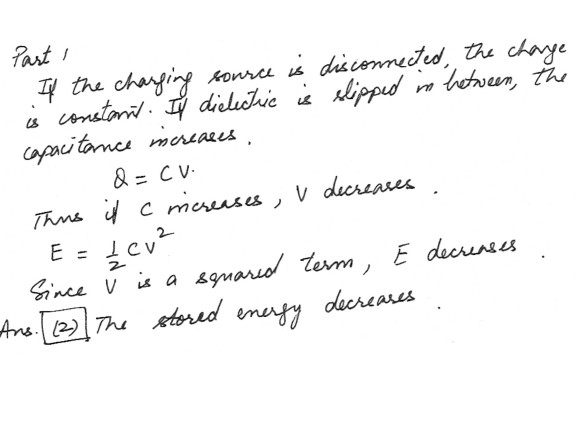 Part 1
If the charging source is disconnected, the charge
is constant. If dielectric is slipped in between, the
capacitance increases.
Q = CV.
Thus if C increases, V decreases.
E = 1/2 CV²
Since V is a squared term, E decreases.
Ans. (2) The stored energy decreases.